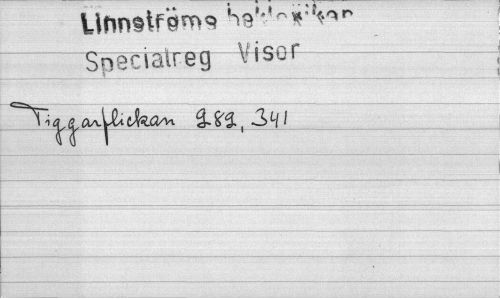 Linnströms boklexikon
Specialreg Visor
Tiggarflickan 282, 341